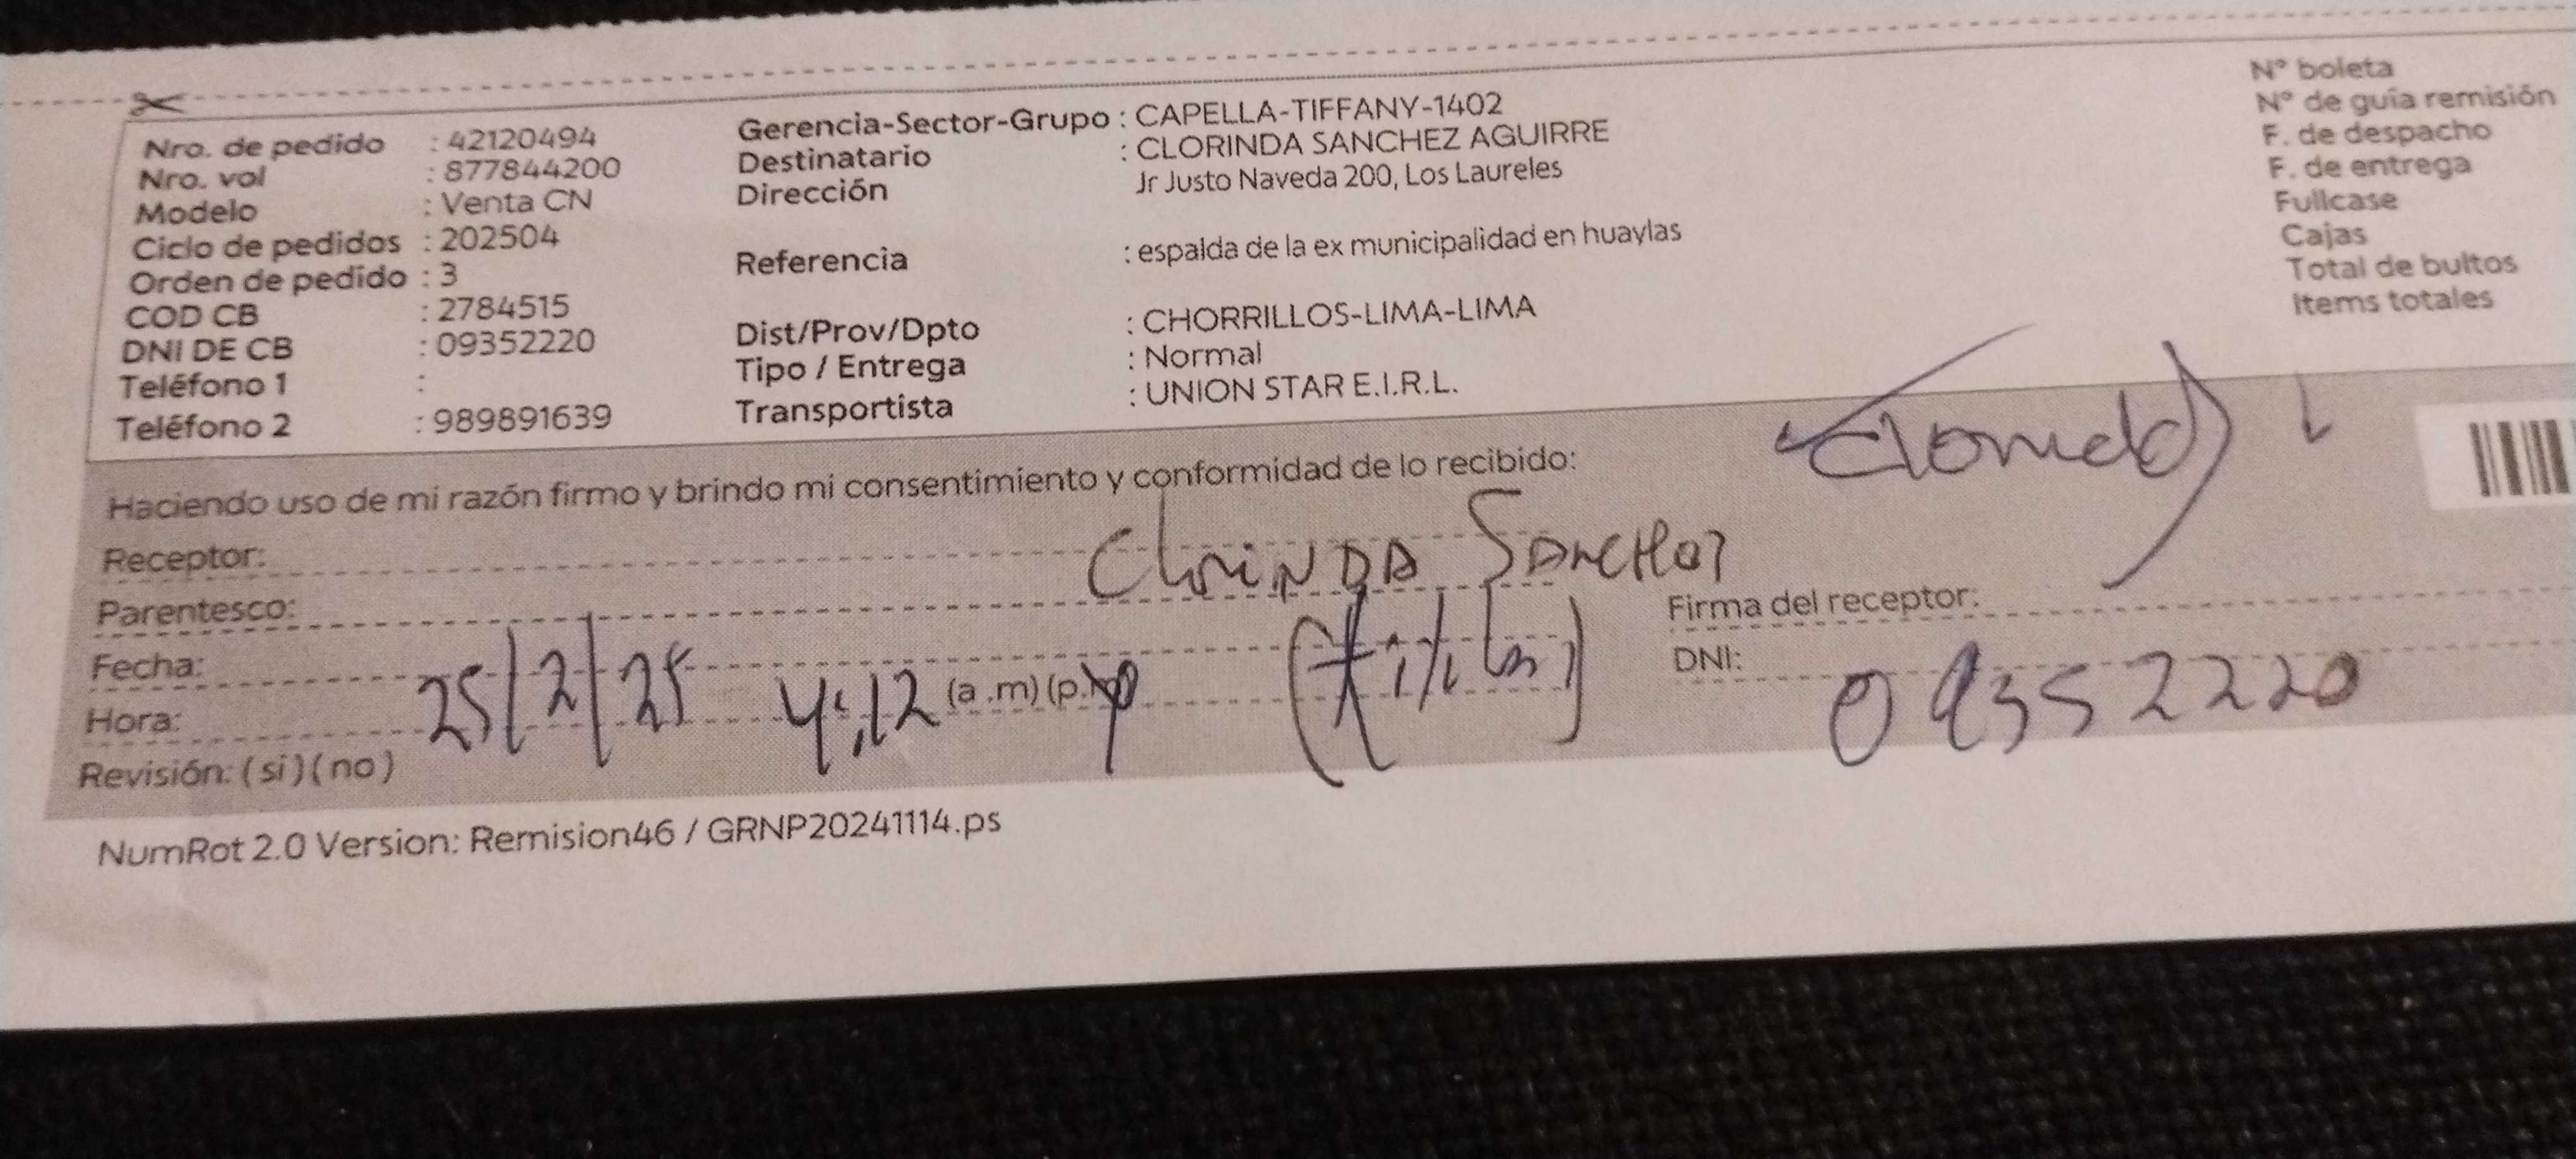 Nro. de pedido : 42120494
Nro. vol : 877844200
Modelo : Venta CN
Ciclo de pedidos : 202504
Orden de pedido : 3
COD CB : 2784515
DNI DE CB : 09352220
Teléfono 1 :
Teléfono 2 : 989891639
Gerencia-Sector-Grupo : CAPELLA-TIFFANY-1402
Destinatario : CLORINDA SANCHEZ AGUIRRE
Dirección Jr Justo Naveda 200, Los Laureles
Referencia : espalda de la ex municipalidad en huaylas
Dist/Prov/Dpto : CHORRILLOS-LIMA-LIMA
Tipo / Entrega : Normal
Transportista : UNION STAR E.I.R.L.
N° boleta
N° de guía remisión
F. de despacho
F. de entrega
Fullcase
Cajas
Total de bultos
Items totales
Haciendo uso de mi razón firmo y brindo mi consentimiento y conformidad de lo recibido:
Receptor: Clorinda Sanchez
Parentesco:
Fecha: 25/2/25
Hora: 4:12 (a.m) (p.m)
(titular)
Revisión: (si) (no)
Firma del receptor:
DNI: 09352220
NumRot 2.0 Version: Remision46 / GRNP20241114.ps